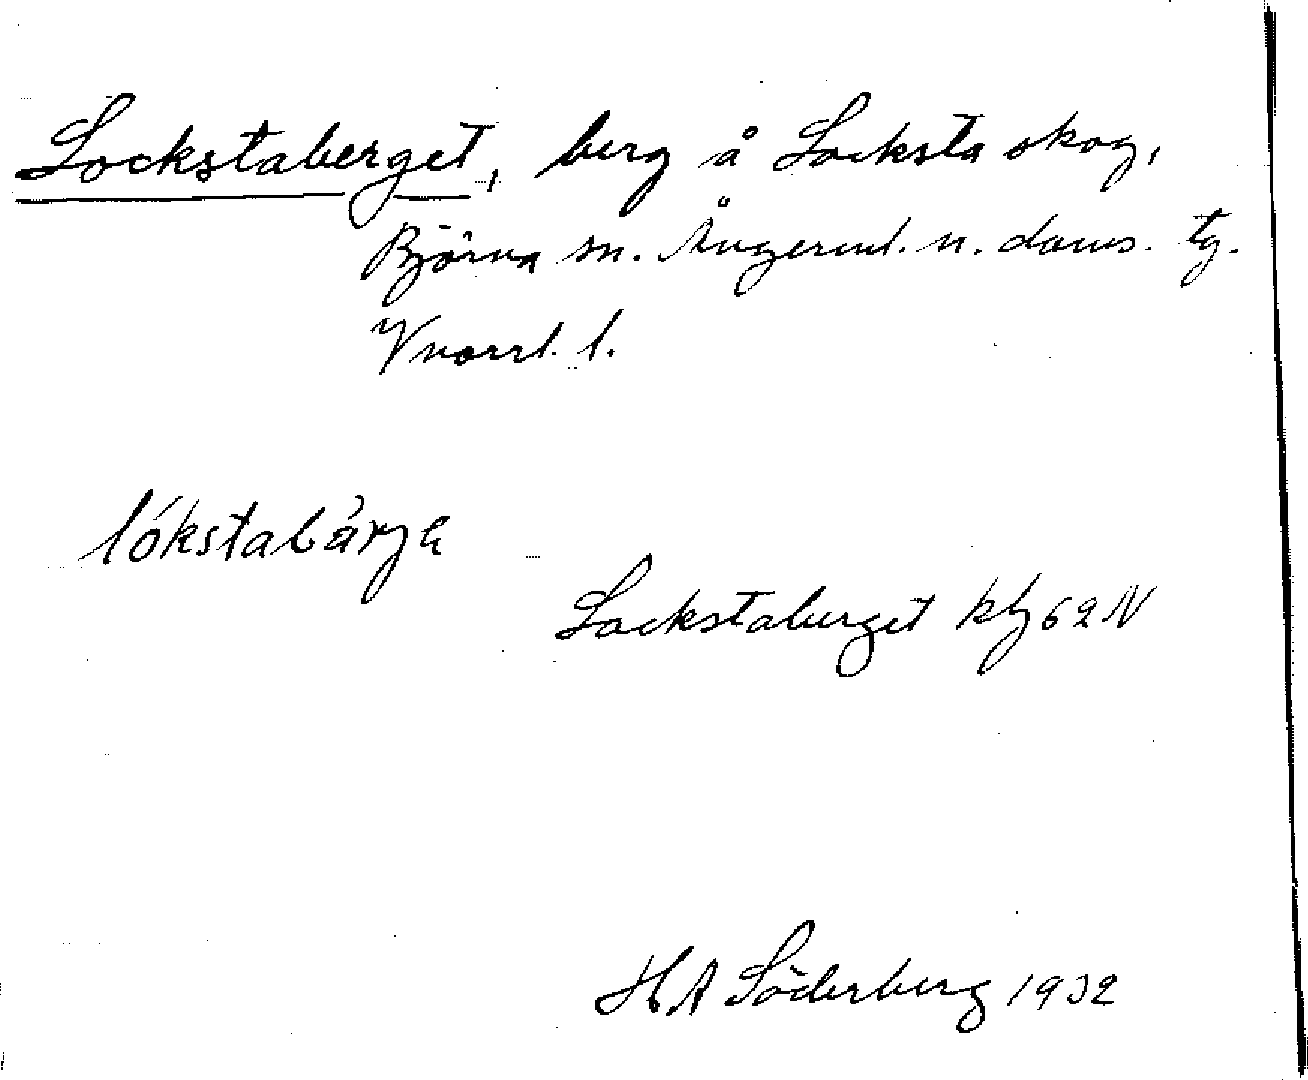 Lockstaberget, berg å Locksta skog,
Björna sn. Ångerml. n. doms. tg.
Vnorrl. l.
lókstabärja
Lockstaberget kbl 62 N
H A Söderberg 1932